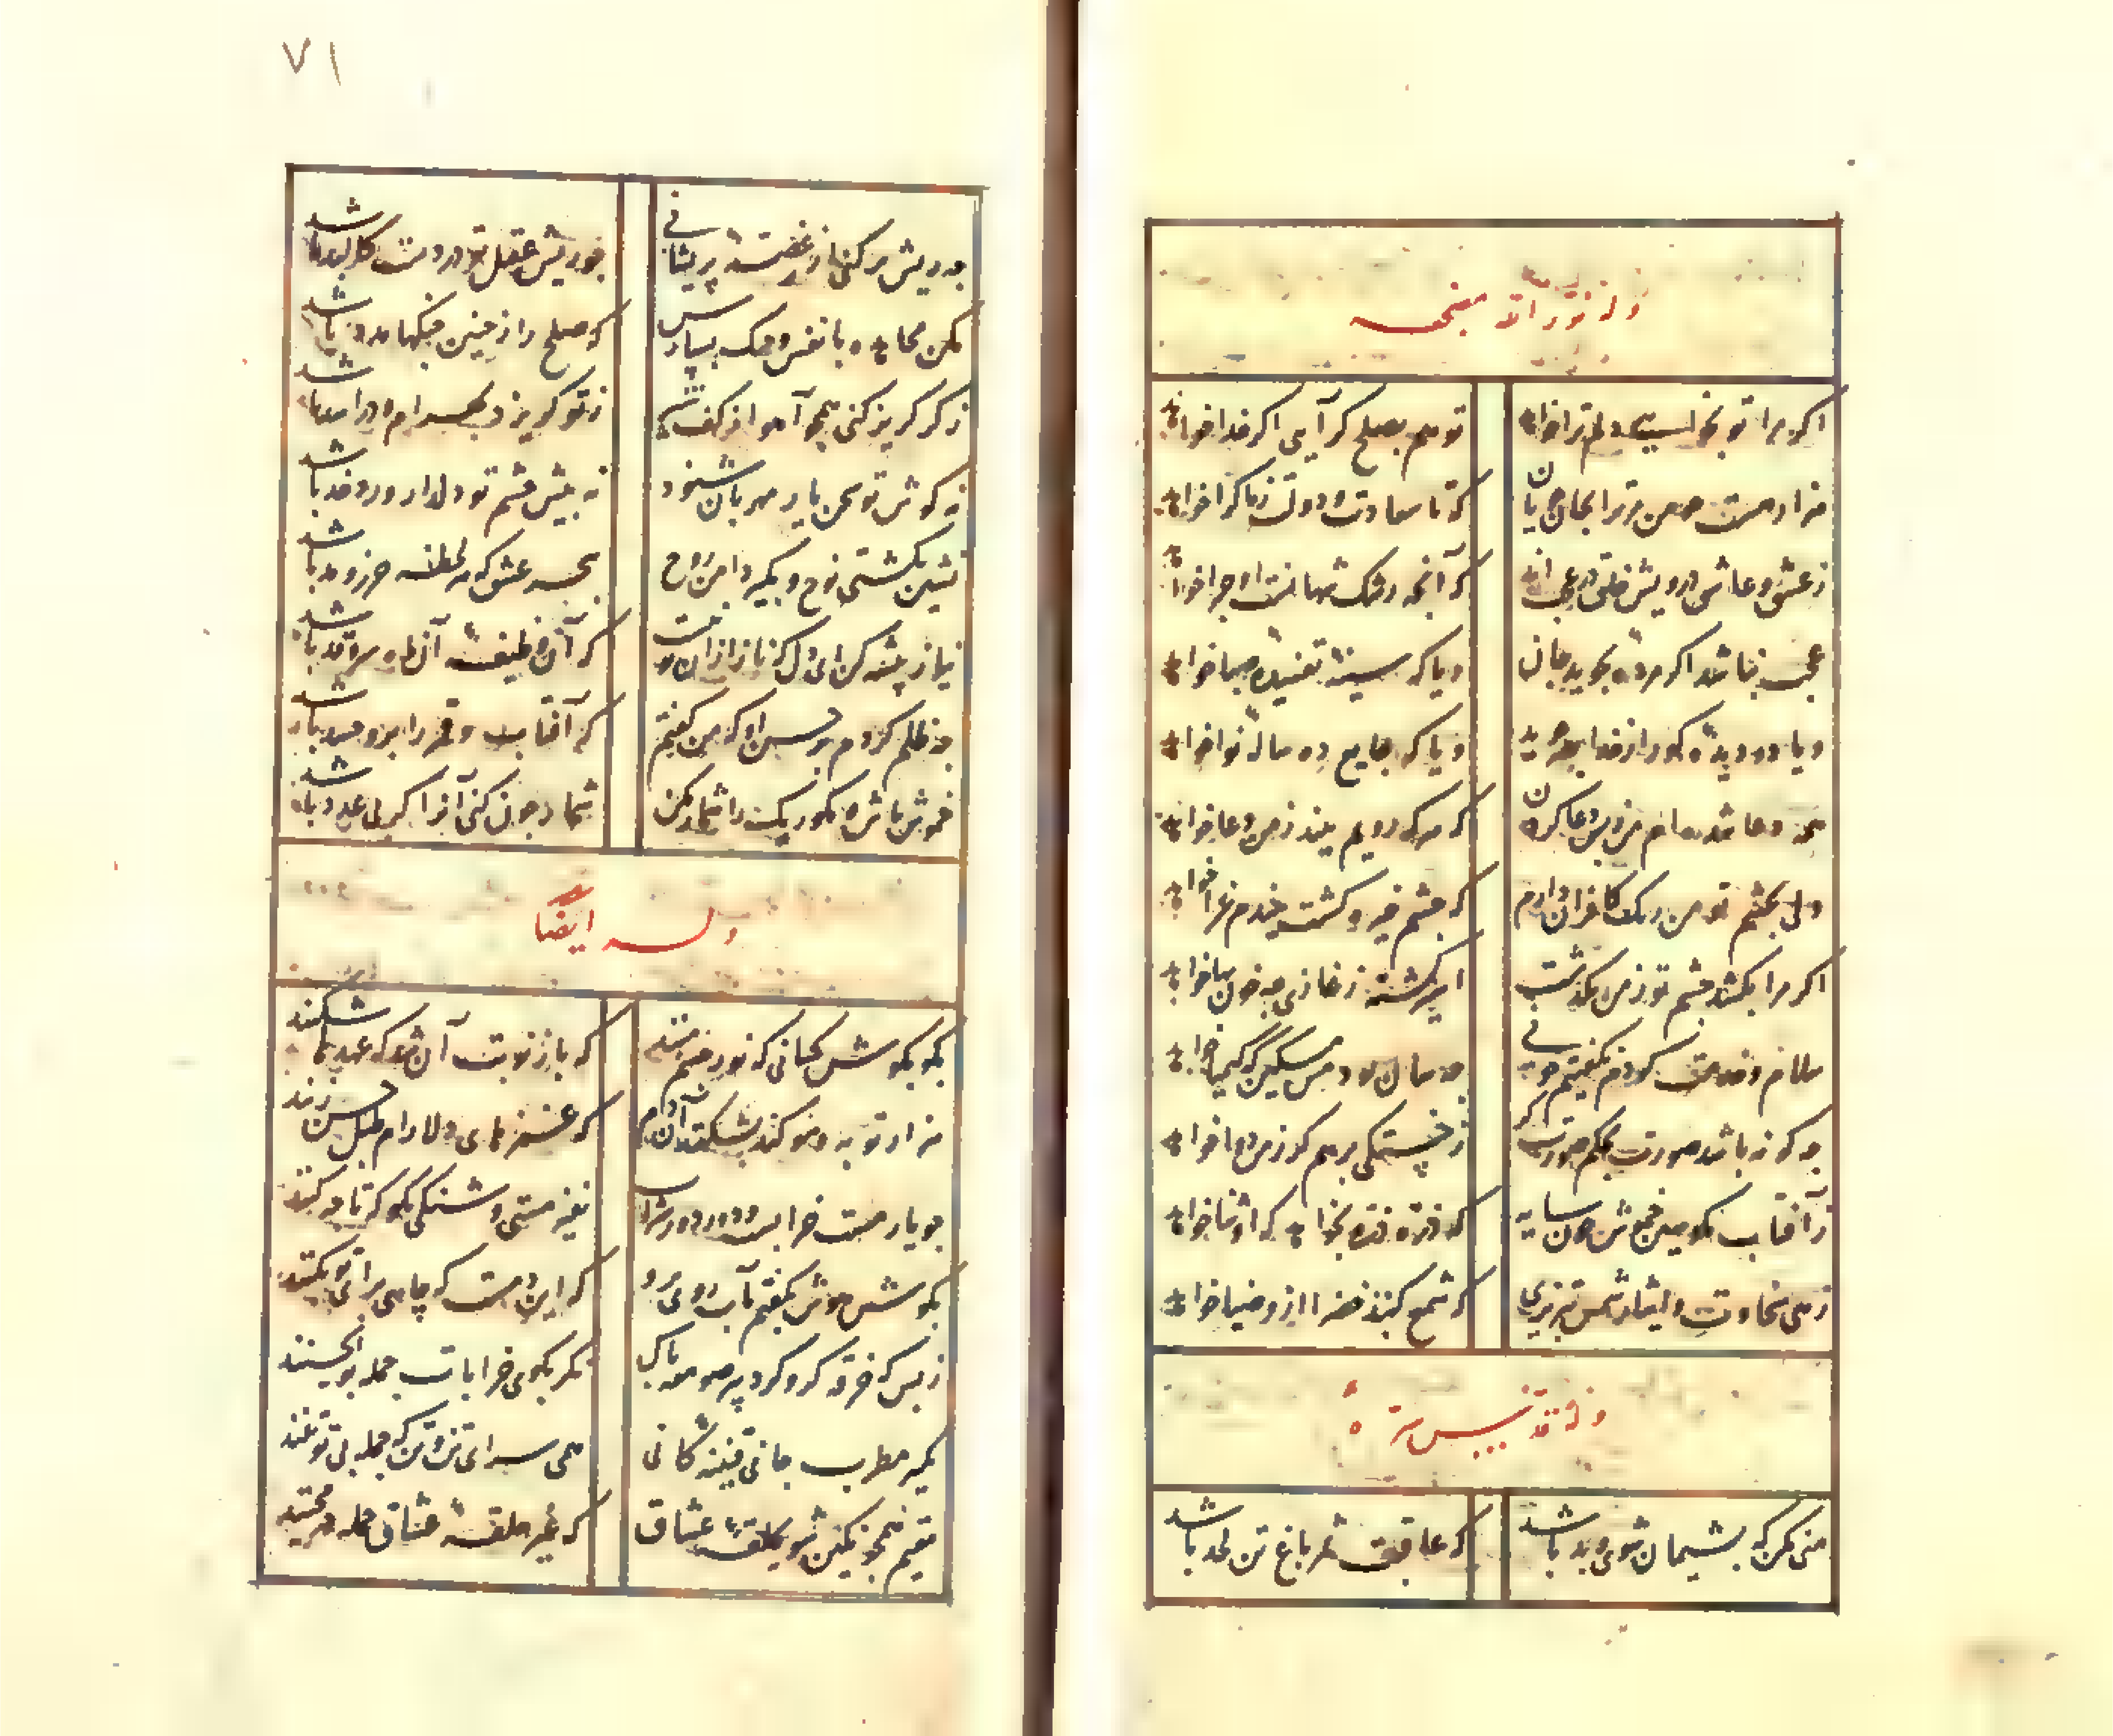 وله نور الله مضجعه
اگر مرا تو نخواهی دلم ترا خواهد
تو هم بصلح گرآیی اگر خدا خواهد
هزار عاشق
که تا سعادت و دولت ز ما کرا خواهد
ز عشق و عاشق درویش خلق در عجب اند
که آنچه رشک شهانست او چرا خواهد
عجب نباشد اگر مرده بجوید جان
و یا که سینه تفسیده صبا خواهد
و یا دو دیده کور از خدا بصر جوید
و یا که جایع ده ساله نوا خواهد
همه دعا شده ام من ز بس دعا کردن
که هر که رویم بیند ز من دعا خواهد
ولی بچشم تو من رنگ کافران دارم
که چشم خیره کشت خنجرم غزا خواهد
اگر مرا بکشد چشم تو ز من بگذشت
اسیر کشته ز غازی چه خونبها خواهد
سلام و خدمت کردم بگفتیم چونی
چه سان بود مس مسکین که کیمیا خواهد
چگونه باشد صورت بحکم صورتگر
ز خستگی برهم گر ز من دوا خواهد
ز آفتاب مگو میر جمع شو چون سایه
که ذره ذره نخواهد که او ثنا خواهد
زهی سخاوت و ایثار شمس تبریزی
که شمع گنبد خضرا از او ضیا خواهد
وله قدس سره
منی مکن که پشیمان شوی و بد باشد
که عاقبت ثمر باغ تن لحد باشد
۷۱
چه ریش برکنی از غصه پشیمانی
چو ریش عقل تو در دست کالبد باشد
بکن مجاهده با نفس و جنگ ریشاریش
که صلح را ز چنین جنگها مدد باشد
وگر گریز کنی همچو آهو از کف شیر
ز تو گریزد دلارام را مدد باشد
نه گوش تو سخن یار مهربان شنود
نه پیش چشم تو دلدار سرو قد باشد
نشین بکشتی نوح و بگیر دامن روح
ببحر عشق که هر لحظه جزر و مد باشد
نیاز پیشه کن ای دل که ناز از آن تو نیست
که آن وظیفه آن ماه سرو قد باشد
چه ظلم کردم بر حسن او که مه گفتم
که آفتاب و قمر را برو حسد باشد
خموش باش و مگو ریگ را شمار مکن
شمار چون کنی آنرا که بی عدد باشد
وله ایضا
بگو بگوش کسانی که نور چشم منند
که باز نوبت آن شد که عهد ما شکنند
هزار توبه و سوگند بشکند آن دم
که غمزه های دلارام طبل حسن زنند
چو یار مست خرابست و روز روز شراب
بغیر مستی و شنگی بگو که تا چه کنند
بگوش هوش بگفتم بآب روی برو
که این دمست که چاهی برای تو بکنند
ز بس که خرقه گرو کرد پیر صومعه پاک
مگر بکوی خرابات جمله بوالحسنند
بگیر مطرب جانی قنینه کانی
همی سرای تننتن که جمله بی تو تنند
مقیم همچو نگین شو بحلقه عشاق
که غیر حلقه عشاق جمله ممتحنند